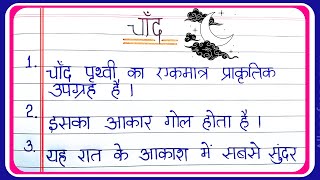 चाँद
1. चाँद पृथ्वी का एकमात्र प्राकृतिक
उपग्रह है ।
2. इसका आकार गोल होता है ।
3. यह रात के आकाश में सबसे सुंदर